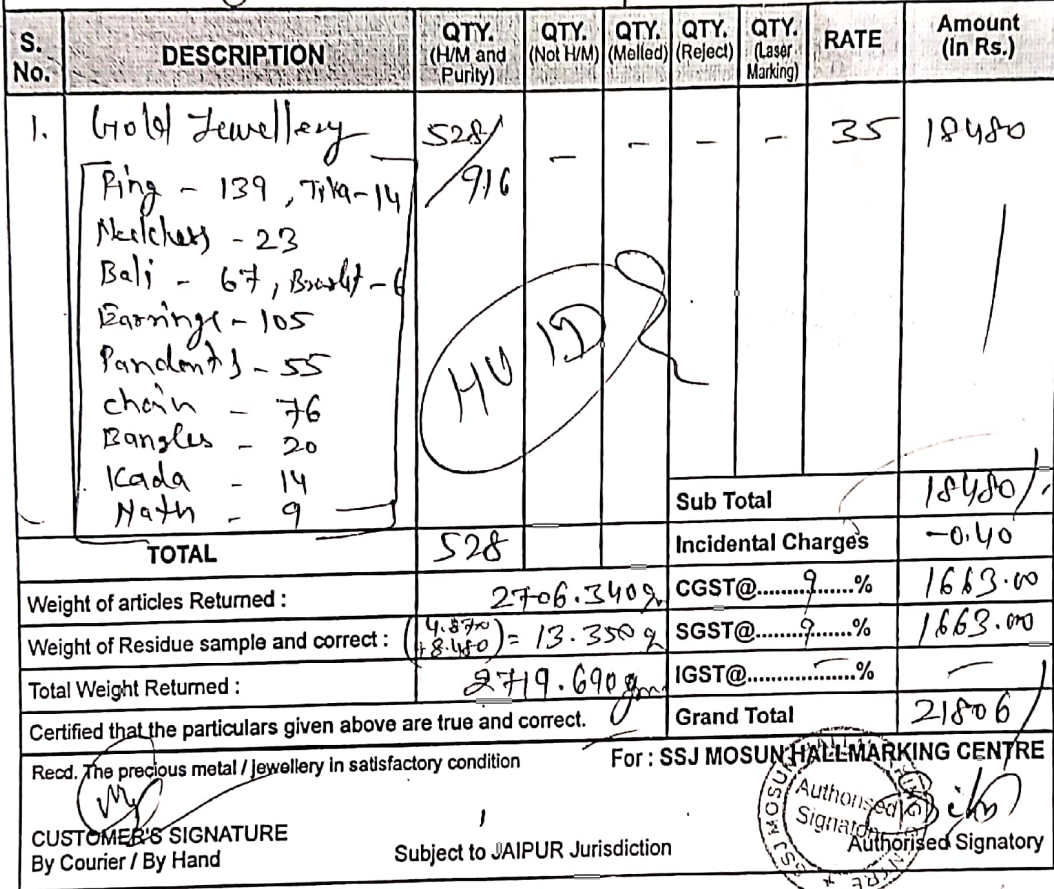 S. No. DESCRIPTION QTY. (H/M and Purity) QTY. (Not H/M) QTY. (Melled) QTY. (Reject) QTY. (Laser Marking) RATE Amount (In Rs.)
1. Gold Jewellery 528/916 - - - - 35 18480
Ring - 139, Tika-14
- 23
Bali - 67, - 6
Earrings - 105
Pandents - 55
chain - 76
Bangles - 20
Kada - 14
Nath - 9
HUID
Sub Total 18480/-
TOTAL 528 Incidental Charges -0.40
Weight of articles Returned : 2706.340g CGST@.........9......% 1663.00
Weight of Residue sample and correct : (4.870 + 8.480) = 13.350 g SGST@.........9......% 1663.00
Total Weight Returned : 2719.690gm IGST@...................% -
Certified that the particulars given above are true and correct. Grand Total 21806/
Recd. The precious metal / Jewellery in satisfactory condition For : SSJ MOSUN HALLMARKING CENTRE
Authorised Signatory
CUSTOMER'S SIGNATURE
By Courier / By Hand Subject to JAIPUR Jurisdiction Authorised Signatory